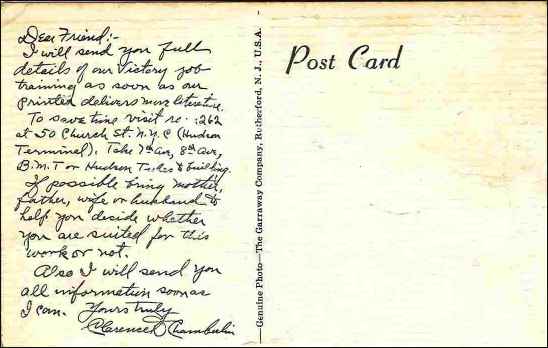 Dear Friend:-
I will send you full
details of our Victory job
training as soon as our
printed delivers more literature.
To save time visit re. :262
at 50 Church St. N.Y.C (Hudson
Terminal). Take 7th Ave, 8th Ave,
B.M.T or Hudson Tubes to building.
If possible bring mother,
father, wife or husband to
help you decide whether
you are suited for this
work or not.
Also I will send you
all information soon as
I can. Yours truly
Clarence Chamberlin
Genuine Photo—The Garraway Company, Rutherford, N. J., U.S.A.
Post Card